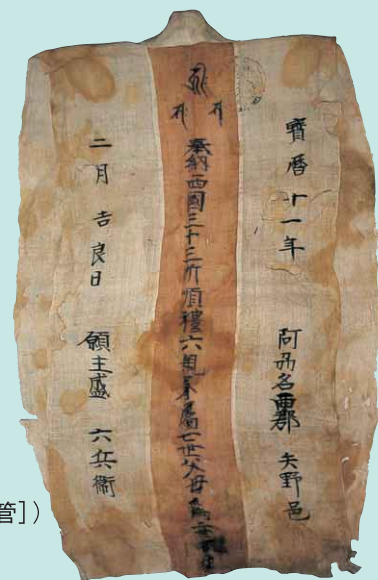 寶暦十一年 阿刕名西郡 矢野邑
奉納西國三十三所順禮六親眷属七世父母為
二月吉良日 願主盛 六兵衛
管])